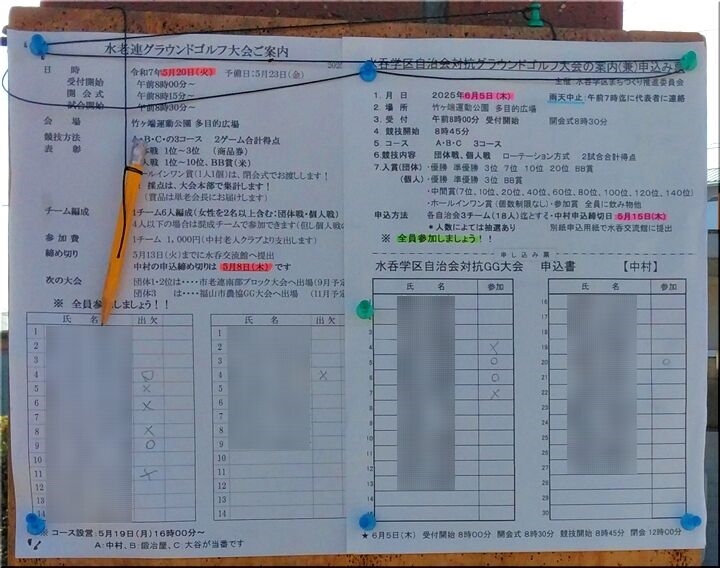 水老連グラウンドゴルフ大会ご案内
日時 令和7年5月20日(火) 予備日:5月23日(金)
受付開始 午前8時00分~
開会式 午前8時15分~
試合開始 午前8時30分~
会場 竹ヶ端運動公園 多目的広場
競技方法 A・B・Cの3コース 2ゲーム合計得点
表彰 体戦 1位~3位 (商品券)
人戦 1位~10位、BB賞(米)
ールインワン賞(1人1個)は、閉会式でお渡しします!
採点は、大会本部で集計します!
(賞品は単老会長にお届けします)
チーム編成 1チーム6人編成(女性を2名以上含む:団体戦・個人戦)
4人以下の場合は混成チームで参加できます(但し個人戦の
参加費 1チーム 1,000円(中村老人クラブより支出します)
締め切り 5月13日(火)までに水呑交流館へ提出
中村の申込締め切りは 5月8日(木) です
次の大会 団体1・2位は・・・・市老連南部ブロック大会へ出場(9月予定
団体3 は・・・・福山市農協GG大会へ出場 (11月予定
※ 全員参加しましょう!!
氏名 出欠 氏名 出欠
1 1
2 2
3 3
4 O 4 ×
5 × 5
6 × 6
7 7
8 × 8
9 O 9
10 10
11 × 11
12 12
13 13
14 14
※ コース設営:5月19日(月)16時00分~
A:中村、B:鍛冶屋、C:大谷が当番です
水呑学区自治会対抗グラウンドゴルフ大会の案内(兼)申込み票
主催 水呑学区まちづくり推進委員会
1.月日 2025年6月5日(木) 雨天中止・午前7時迄に代表者に連絡
2.場所 竹ヶ端運動公園 多目的広場
3.受付 午前8時00分 受付開始 開会式8時30分
4.競技開始 8時45分
5.コース A・B・C 3コース
6.競技内容 団体戦、個人戦 ローテーション方式 2試合合計得点
7.入賞(団体)・優勝 準優勝 3位 7位 10位 20位 BB賞
(個人)・優勝 準優勝 3位 BB賞
・中間賞(7位、10位、20位、40位、60位、80位、100位、120位、140位)
・ホールインワン賞(個数制限なし)・参加賞 全員に飲み物他
申込方法 各自治会3チーム(18人)迄とする・中村申込締切日 5月15日(木)
*人数によっては抽選あり 別紙申込用紙で水呑交流館に提出
※ 全員参加しましょう!
申し込み票
水呑学区自治会対抗GG大会 申込書 【中村】
氏名 参加 氏名 参加
1 16
2 17
3 18
4 × 19
5 O 20 O
6 O 21
7 × 22
8 23
9 24
10 25
11 26
12 27
13 28
14 29
15 30
★ 6月5日(木) 受付開始 8時00分 開会式 8時30分 競技開始 8時45分 閉会 12時00分